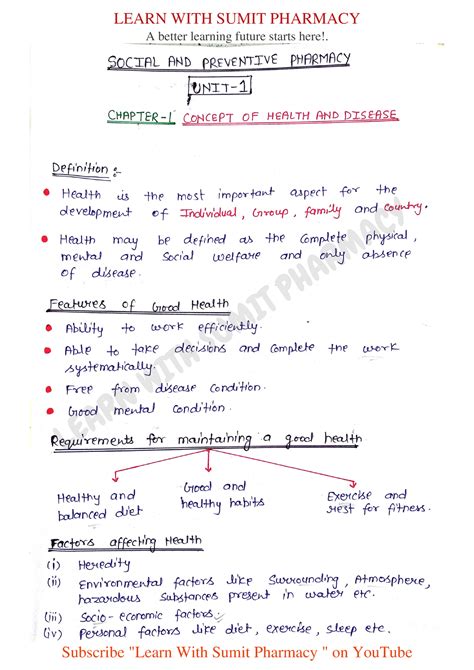 LEARN WITH SUMIT PHARMACY
A better learning future starts here!.
SOCIAL AND PREVENTIVE PHARMACY
UNIT-1
CHAPTER-1 CONCEPT OF HEALTH AND DISEASE
Definition :-
• Health is the most important aspect for the
development of Individual, Group, family and Country.
• Health may be defined as the Complete physical,
mental and Social welfare and only absence
of disease.
Features of Good Health
• Ability to work efficiently.
• Able to take decisions and Complete the work
systematically.
• Free from disease condition.
• Good mental condition.
Requirements for maintaining a good health
Healthy and balanced diet
Good and healthy habits
Exercise and rest for fitness.
Factors affecting Health
(i) Heredity
(ii) Environmental factors like Surrounding, Atmosphere,
hazardous Substances present in water etc.
(iii) Socio-economic factors.
(iv) Personal factors like diet, exercise, sleep etc.
LEARN WITH SUMIT PHARMACY
Subscribe "Learn With Sumit Pharmacy " on YouTube